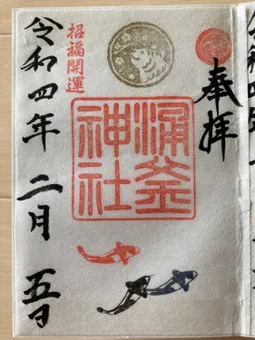 奉拝
涌釜
神社
招福開運
令和四年 二月 五日